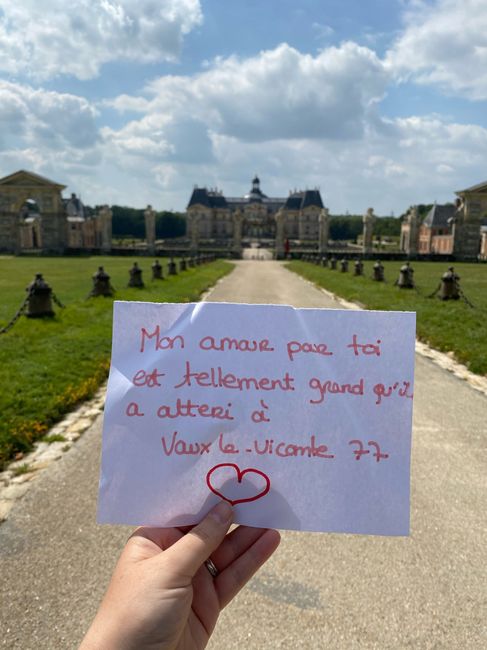 Mon amour par toi
est tellement grand qu'il
a atteri à
Vaux le-vicomte 77